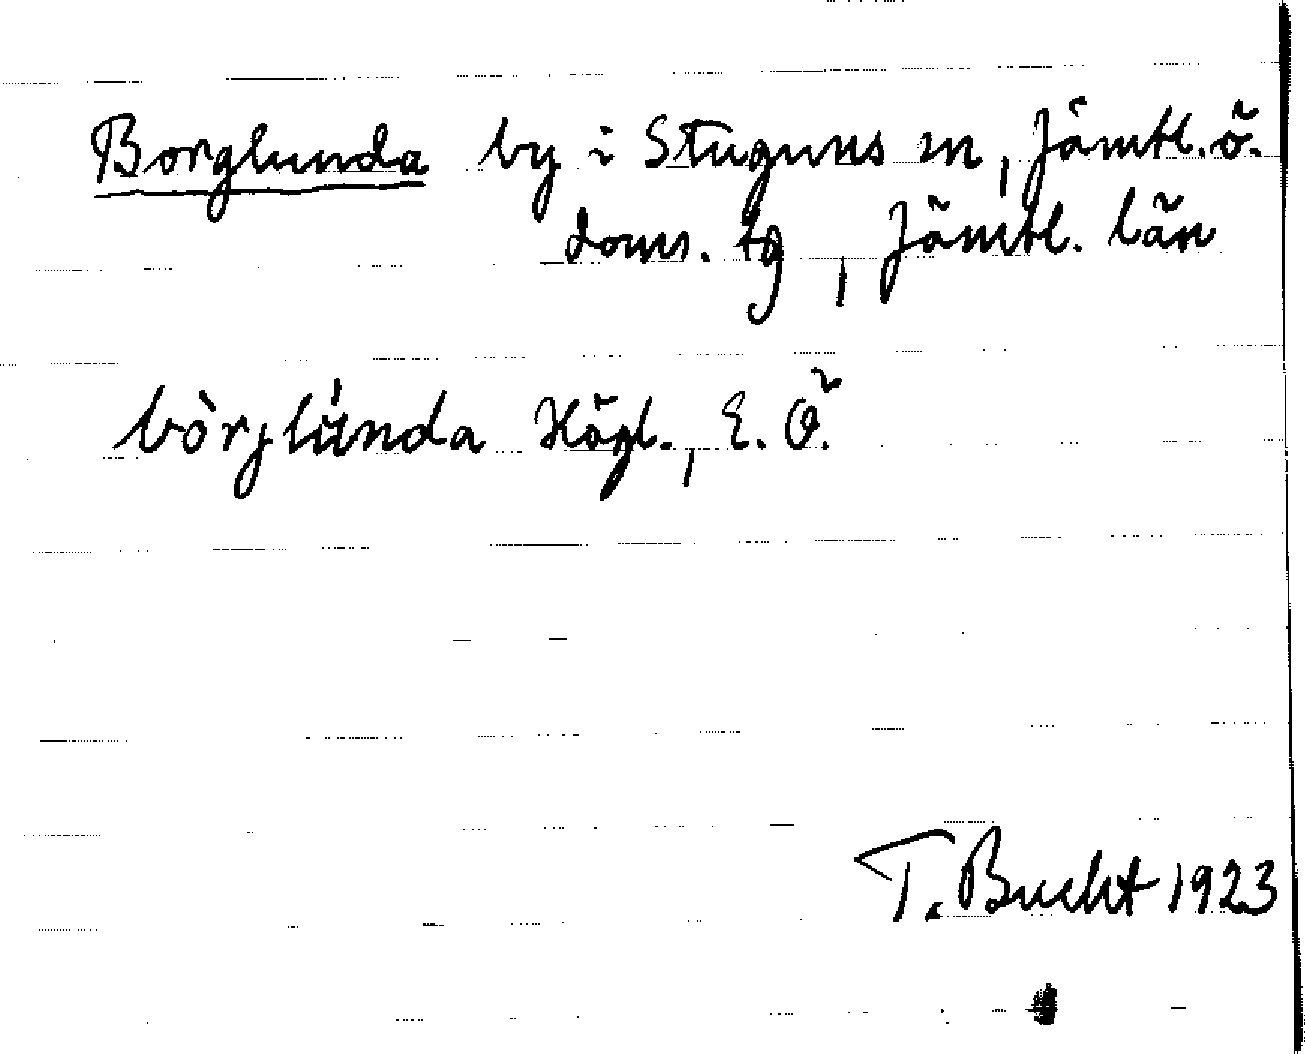 Borglunda by i Stuguns sn, Jämtl. ö.
doms. tg, Jämtl. län
bòrglúnda Högl., E. Ö.
T. Bucht 1923